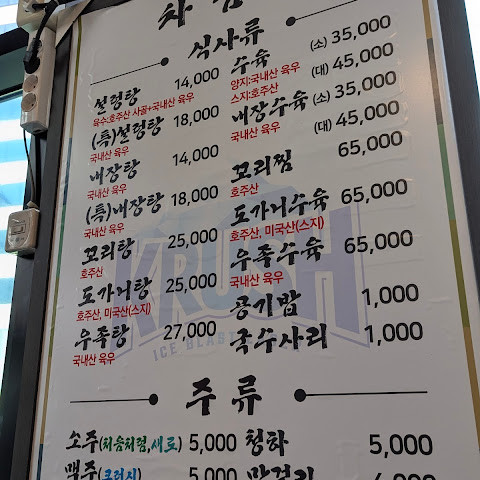 차림
식사류
설렁탕 14,000
육수:호주산 사골+국내산 육우
(특)설렁탕 18,000
국내산 육우
내장탕 14,000
국내산 육우
(특)내장탕 18,000
국내산 육우
꼬리탕 25,000
호주산
도가니탕 25,000
호주산, 미국산(스지)
우족탕 27,000
국내산 육우
수육 (소) 35,000
양지:국내산 육우 (대) 45,000
스지:호주산
내장수육 (소) 35,000
국내산 육우 (대) 45,000
꼬리찜 65,000
호주산
도가니수육 65,000
호주산, 미국산(스지)
우족수육 65,000
국내산 육우
공기밥 1,000
국수사리 1,000
KRUSH
ICE BLAST
주류
소주(처음처럼,새로) 5,000
맥주(크러시) 5,000
청하 5,000
막걸리 4,000